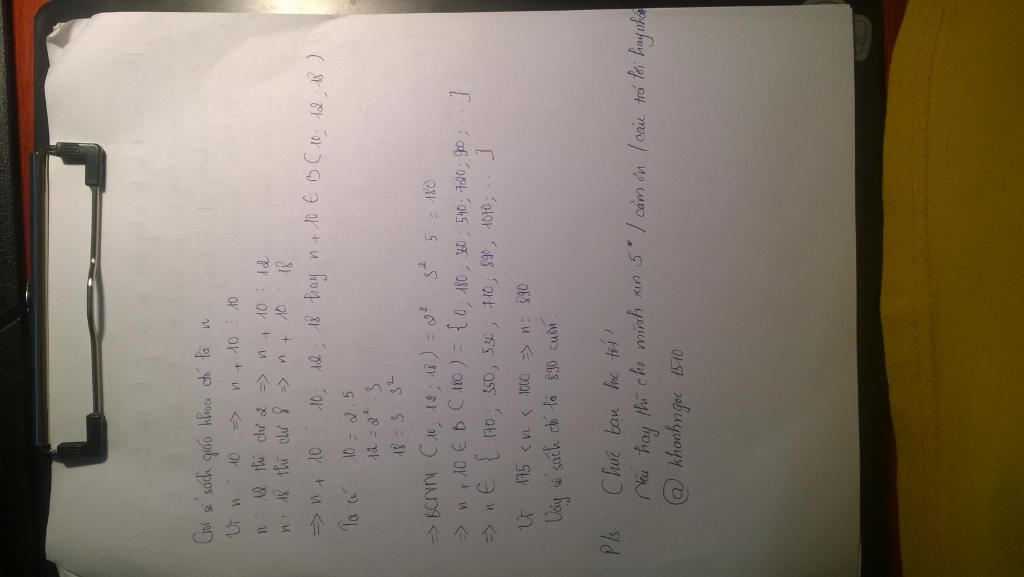 Gọi số sách giáo khoa đó là n
Vì n : 10 => n + 10 : 10
n : 12 thì dư 2 => n + 10 : 12
n : 18 thì dư 8 => n + 10 : 18
=> n + 10 : 10 ; 12 ; 18 hay n + 10 ∈ B ( 10 ; 12 ; 18 )
Ta có : 10 = 2 . 5
12 = 2² . 3
18 = 3 . 3²
=> BCNN ( 10 ; 12 ; 18 ) = 2² 3² . 5 = 180
=> n + 10 ∈ B ( 180 ) = { 0 ; 180 ; 360 ; 540 ; 720 ; 900 ; ... }
=> n ∈ { 170 ; 350 ; 530 ; 710 ; 890 ; 1070 ; ... }
Vì 715 < n < 1000 => n = 890
Vậy số sách đó là 890 cuốn.
P/s : Chúc bạn học tốt
Nếu hay thì cho mình xin 5* / cảm ơn / câu trả lời hay nhất
@ khanhngoc 1510